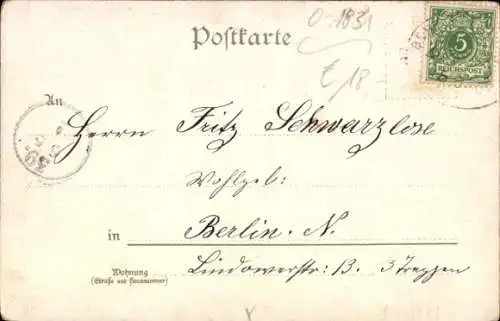 O-1831
Postkarte
£18
5
REICHSPOST
An
Herrn Fritz Schwarzlose
Wohlgeb:
in Berlin. N.
Wohnung
(Straße und Hausnummer)
Lindowerstr: 13. 3 Treppen